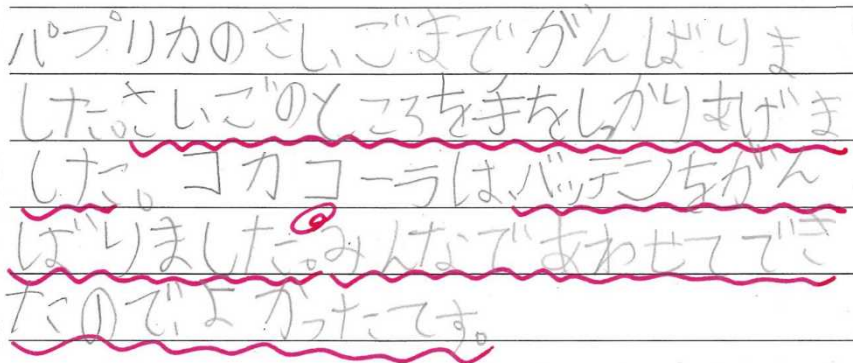 パプリカのさいごまでがんばりま
した。さいごのところを手をしっかりあげま
した。コカコーラは、バッテンをがん
ばりました。みんなであわせてでき
たのでよかったてす。